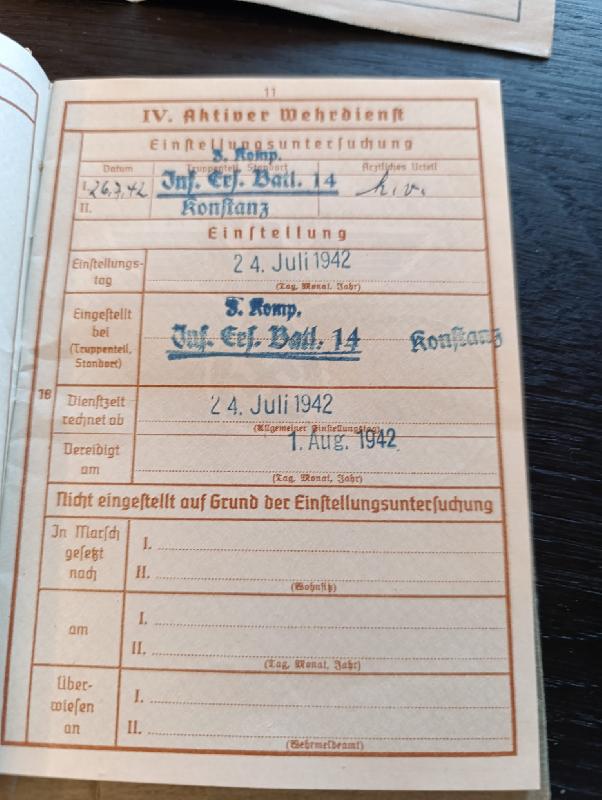 11
IV. Aktiver Wehrdienst
Einstellungsuntersuchung
Datum
Truppenteil, Standort
Ärztliches Urteil
Komp.
I. 26.7.42
Inf. Ers. Batl. 14
k.v.
II.
Konstanz
Einstellung
Einstellungs-
tag
24. Juli 1942
(Tag, Monat, Jahr)
Eingestellt
bei
(Truppenteil,
Standort)
Komp.
Inf. Ers. Batl. 14
Konstanz
18
Dienstzeit
rechnet ab
24. Juli 1942
(Allgemeiner Einstellungstag)
Vereidigt
am
1. Aug. 1942
(Tag, Monat, Jahr)
Nicht eingestellt auf Grund der Einstellungsuntersuchung
In Marsch
gesetzt
nach
I.
II.
(Wohnsitz)
am
I.
II.
(Tag, Monat, Jahr)
Über-
wiesen
an
I.
II.
(Wehrmeldeamt)